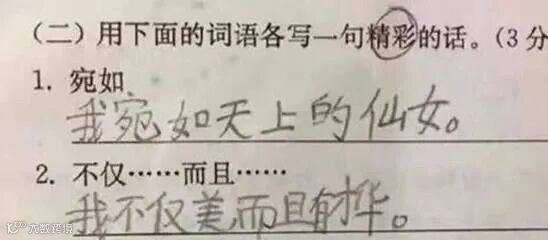 （二）用下面的词语各写一句精彩的话。（3分
1. 宛如
我宛如天上的仙女。
2. 不仅……而且……
我不仅美而且有才华。